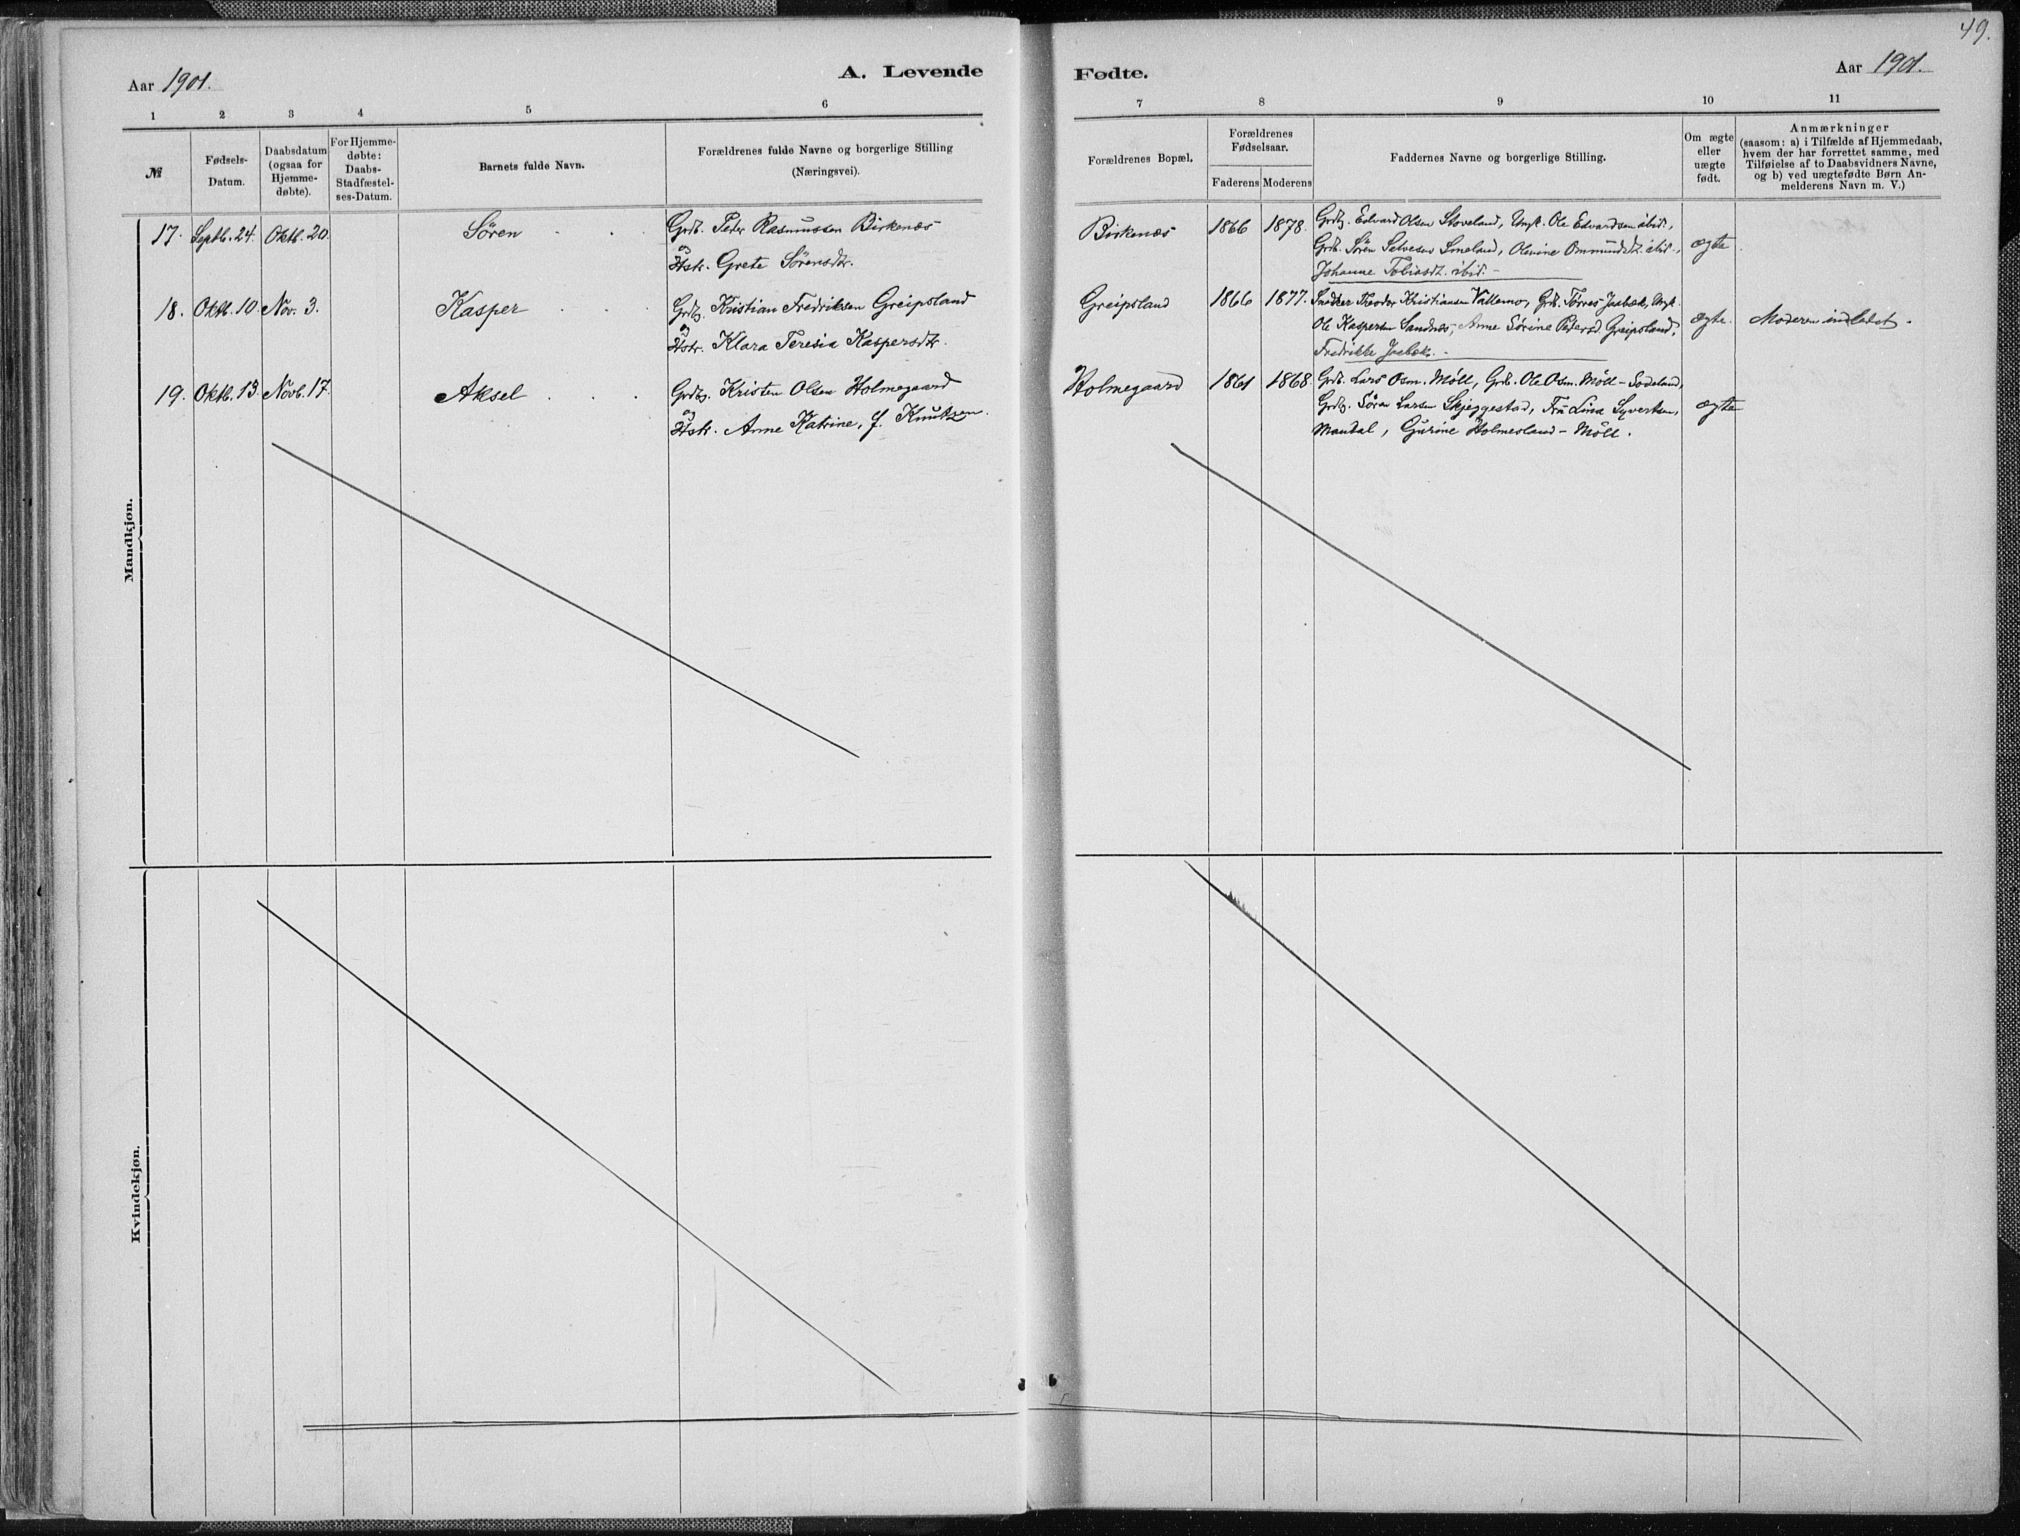 49.
Aar 1901.
A. Levende
Fødte.
Aar 1901.
1 2 3 4 5 6
7 8 9 10 11
№
Fødsels-
Datum.
Daabsdatum
(ogsaa for
Hjemme-
døbte).
For Hjemme-
døbte:
Daabs-
Stadfæstel-
ses-Datum.
Barnets fulde Navn.
Forældrenes fulde Navne og borgerlige Stilling
(Næringsvei).
Forældrenes Bopæl.
Forældrenes
Fødselsaar.
Faderens Moderens
Faddernes Navne og borgerlige Stilling.
Om ægte
eller
uægte
født.
Anmærkninger
(saasom: a) i Tilfælde af Hjemmedaab,
hvem der har forrettet samme, med
Tilføielse af to Daabsvidners Navne,
og b) ved uægtefødte Børn An-
melderens Navn m. V.)
Mandkjøn.
17. Septb. 24. Oktb. 20. Søren
Grdb. Peder Rasmussen Birkenæs
og
Hstr. Grete Sørensdtr.
Birkenæs 1866 1878.
Grdbg. Edvard Olsen Stoveland, Ungk. Ole Edvardsen ibid.,
Grdb. Søren Selvesen Smeland, Olevine Ommundsdt. ibid.,
Johanne Tobiasdt. ibid. -
ægte
18. Oktb. 10. Nov. 3. Kasper
Grdbg. Kristian Fredriksen Greipsland
og
Hstr. Klara Teresia Kaspersdtr.
Greipsland 1866 1877.
Snedker Teodor Kristiansen Vallemo, Grdb. Tørres Jaabæk, Ungk.
Ole Kaspersen Sandnes, Anne Sørine Pedersd. Greipsland,
Fredrikke Jaabæk. -
ægte. Moderen indledet.
19. Oktb. 13. Novb. 17. Aksel
Grdbg. Kristen Olsen Holmegaard
og
Hstr. Anne Katrine, f. Knutsen.
Holmegaard 1861 1868.
Grdb. Lars Osm. Møll, Grdb. Ole Osm. Møll - Sodeland,
Grdbg. Søren Larsen Skjeggestad, Frú Lina Syvertsen,
Mandal, Gurine Holmesland - Møll.
ægte
Kvindekjøn.